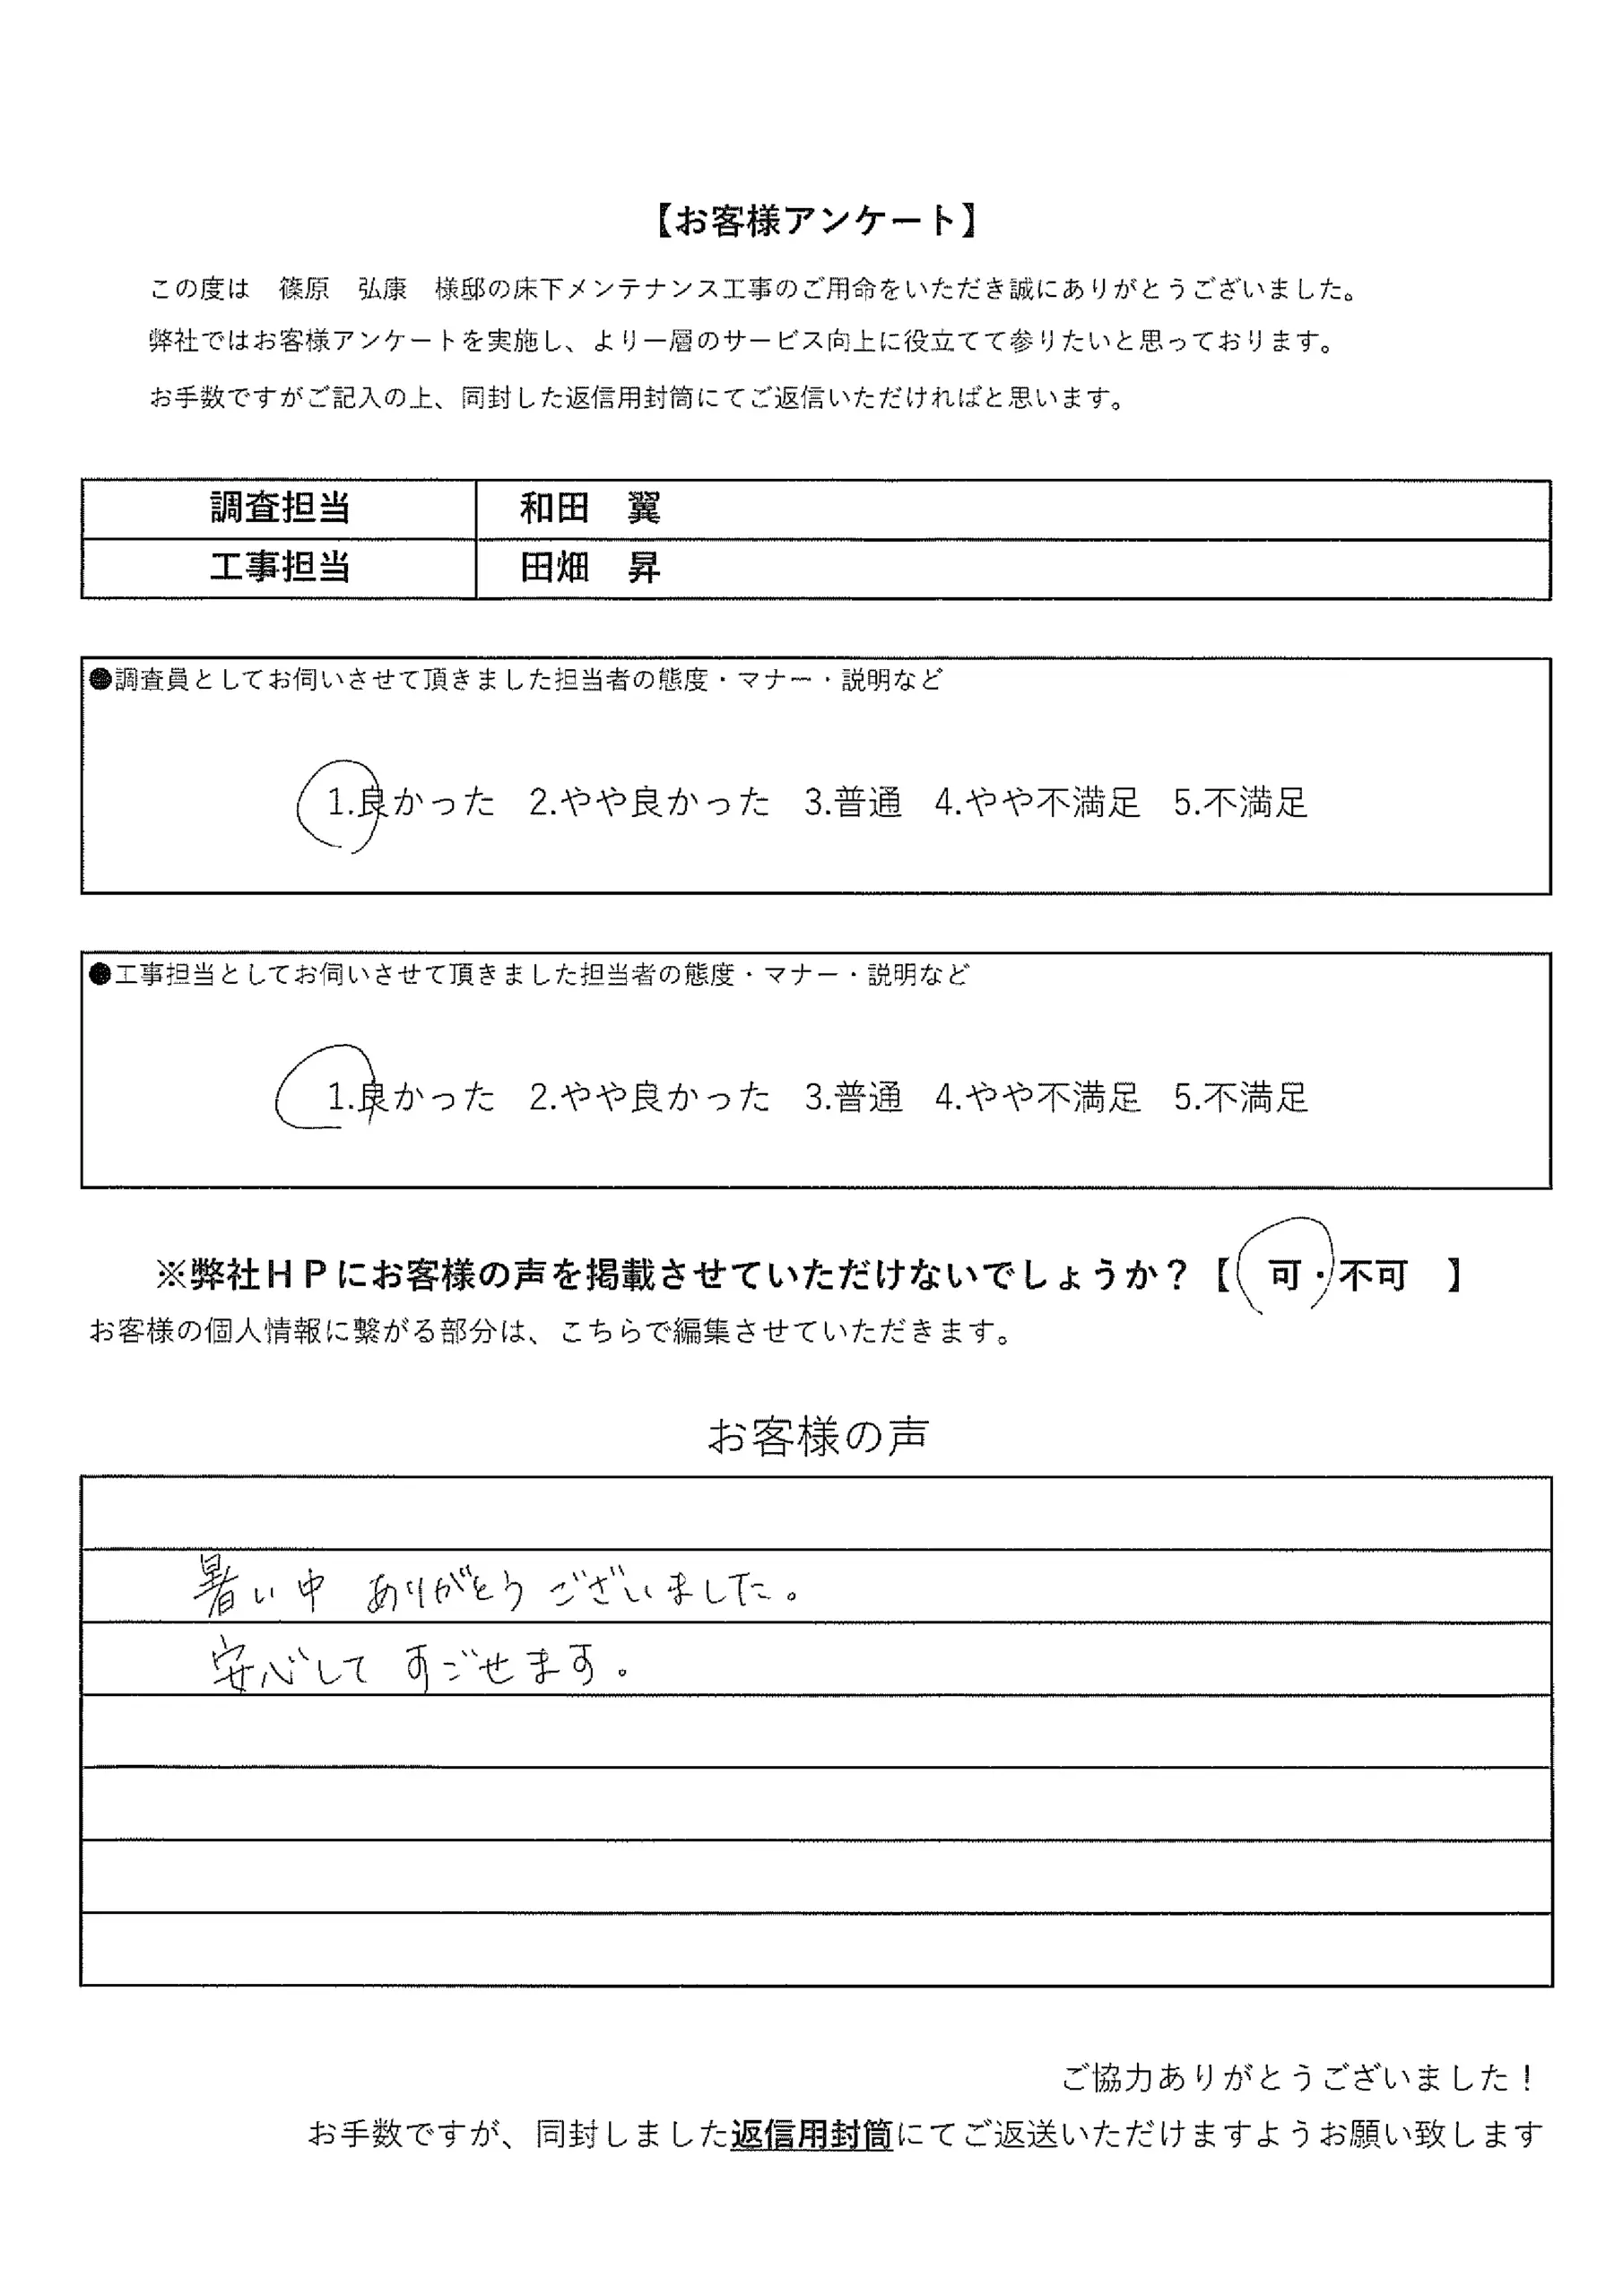 【お客様アンケート】
この度は　篠原　弘康　様邸の床下メンテナンス工事のご用命をいただき誠にありがとうございました。
弊社ではお客様アンケートを実施し、より一層のサービス向上に役立てて参りたいと思っております。
お手数ですがご記入の上、同封した返信用封筒にてご返信いただければと思います。
調査担当　和田　翼
工事担当　田畑　昇
●調査員としてお伺いさせて頂きました担当者の態度・マナー・説明など
1.良かった　2.やや良かった　3.普通　4.やや不満足　5.不満足
●工事担当としてお伺いさせて頂きました担当者の態度・マナー・説明など
1.良かった　2.やや良かった　3.普通　4.やや不満足　5.不満足
※弊社ＨＰにお客様の声を掲載させていただけないでしょうか？【　可・不可　】
お客様の個人情報に繋がる部分は、こちらで編集させていただきます。
お客様の声
暑い中　ありがとうございました。
安心して　すごせます。
ご協力ありがとうございました！
お手数ですが、同封しました返信用封筒にてご返送いただけますようお願い致します